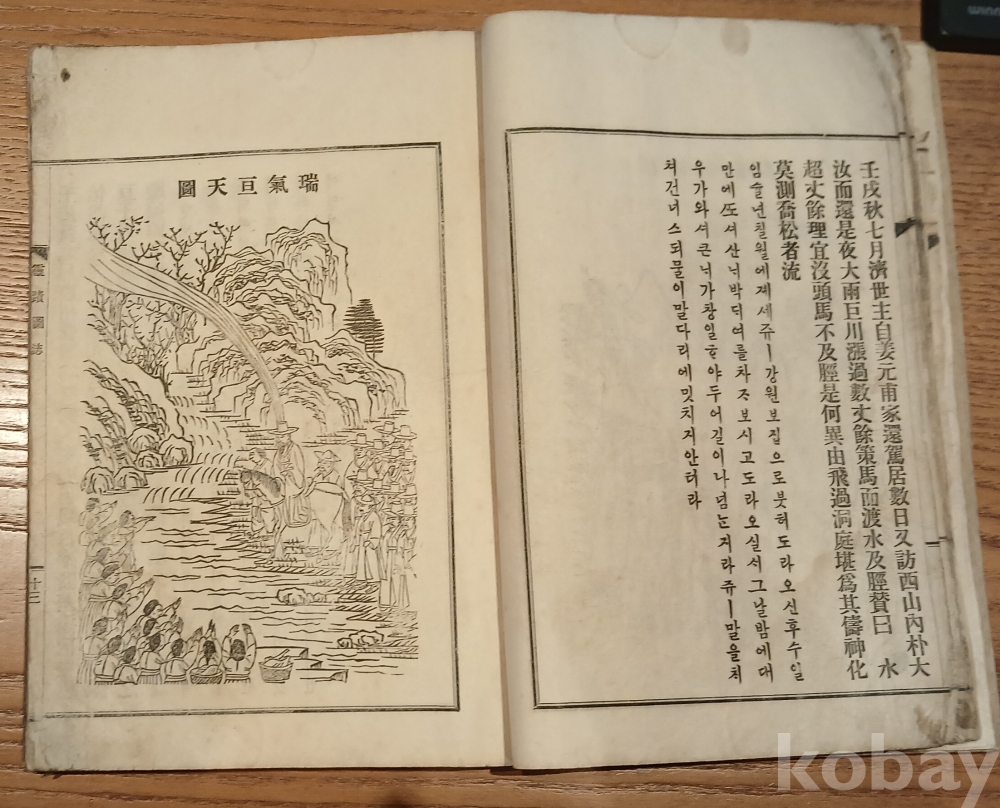 壬戌秋七月濟世主自姜元甫家還駕居數日又訪西山內朴大
汝而還是夜大雨巨川漲過數丈餘策馬而渡水及脛贊曰 水
超丈餘理宜沒頭馬不及脛是何異由飛過洞庭堪爲其儔神化
莫測喬松者流
임슐년칠월에졔세쥬ㅣ강원보집으로붓허도라오신후수일
만에ᄯᅩ셔산ᄂᆡ박ᄃᆡ여를차ᄌᆞ보시고도라오실ᄉᆡ그날밤에대
우가와셔큰ᄂᆡ가창일ᄒᆞ야두어길이나넘ᄂᆞᆫ지라쥬ㅣ말을ᄎᆡ
쳐건너스되물이말다리에밋치지안터라
瑞氣亘天圖
靈蹟圖誌
十三
kobay